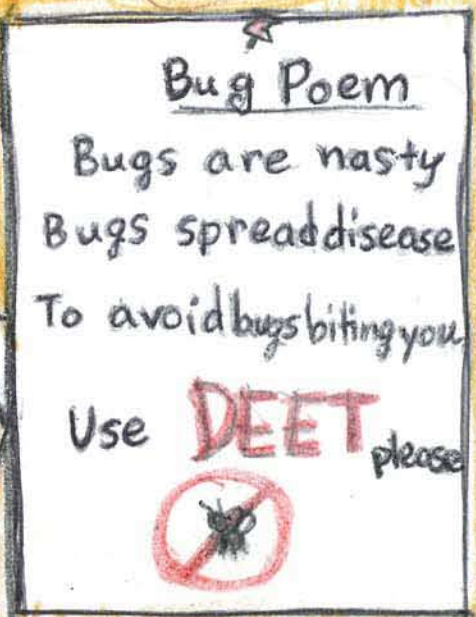 Bug Poem
Bugs are nasty
Bugs spread disease
To avoid bugs biting you
Use DEET please